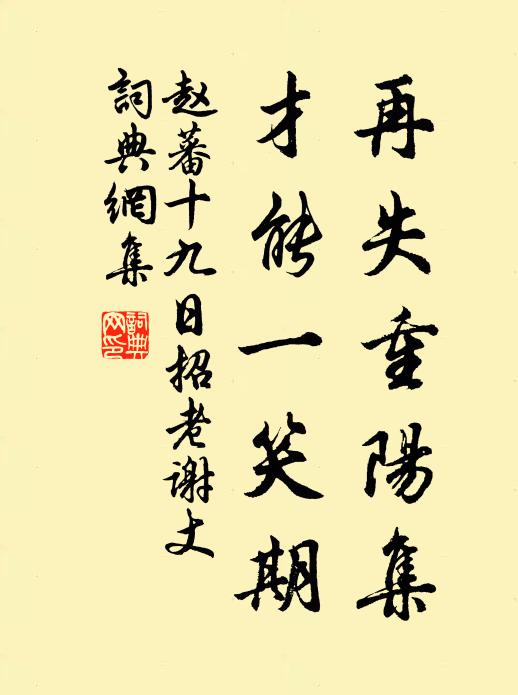 再失重陽集
才能一笑期
赵蕃十九日招老谢丈
詞典網集
詞典網印